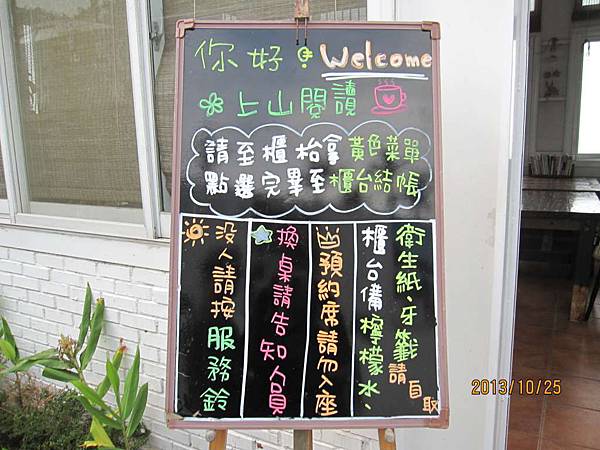 你好! Welcome
上山閱讀
請至櫃枱拿黃色菜單
點選完畢至櫃台結帳
沒人請按服務鈴
換桌請告知人員
預約席請勿入座
櫃台備檸檬水、
衛生紙、牙籤請自取
2013/10/25